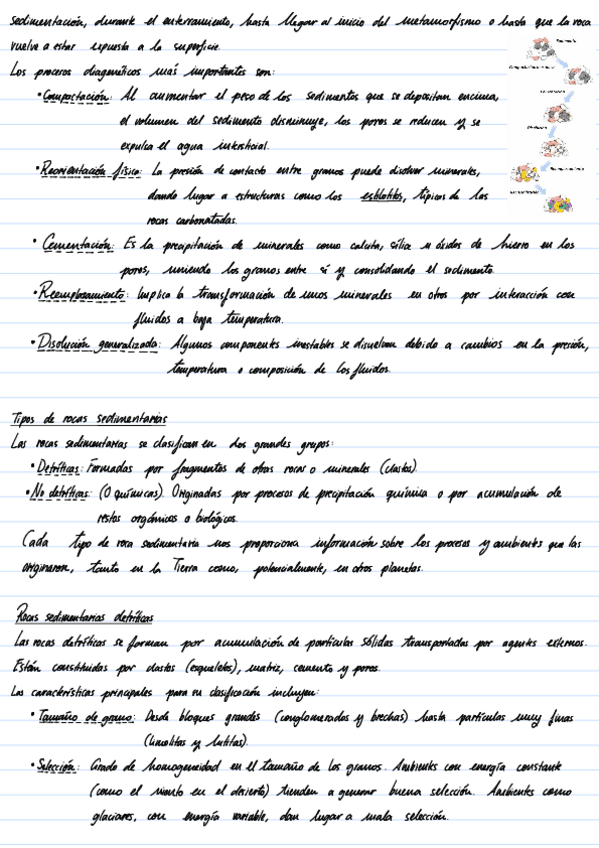 sedimentación, durante el enterramiento, hasta llegar al inicio del metamorfismo o hasta que la roca
vuelve a estar expuesta a la superficie.
Los procesos diagenéticos más importantes son:
• Compactación: Al aumentar el peso de los sedimentos que se depositan encima,
el volumen del sedimento disminuye, los poros se reducen y se
expulsa el agua intersticial.
• Reorientación física: La presión de contacto entre granos puede disolver minerales,
dando lugar a estructuras como los estilolitos, típicos de las
rocas carbonatadas.
• Cementación: Es la precipitación de minerales como calcita, sílice u óxidos de hierro en los
poros, uniendo los granos entre sí y consolidando el sedimento.
• Reemplazamiento: Implica la transformación de unos minerales en otros por interacción con
fluidos a baja temperatura.
• Disolución generalizada: Algunos componentes inestables se disuelven debido a cambios en la presión,
temperatura o composición de los fluidos.
Tipos de rocas sedimentarias
Las rocas sedimentarias se clasifican en dos grandes grupos:
• Detríticas: Formadas por fragmentos de otras rocas o minerales (clastos).
• No detríticas: (O químicas). Originadas por procesos de precipitación química o por acumulación de
restos orgánicos o biológicos.
Cada tipo de roca sedimentaria nos proporciona información sobre los procesos y ambientes que las
originaron, tanto en la Tierra como, potencialmente, en otros planetas.
Rocas sedimentarias detríticas
Las rocas detríticas se forman por acumulación de partículas sólidas transportadas por agentes externos.
Están constituidas por clastos (esqueletos), matriz, cemento y poros.
Las características principales para su clasificación incluyen:
• Tamaño de grano: Desde bloques grandes (conglomerados y brechas) hasta partículas muy finas
(limolitas y lutitas).
• Selección: Grado de homogeneidad en el tamaño de los granos. Ambientes con energía constante
(como el viento en el desierto) tienden a generar buena selección. Ambientes como
glaciares, con energía variable, dan lugar a mala selección.